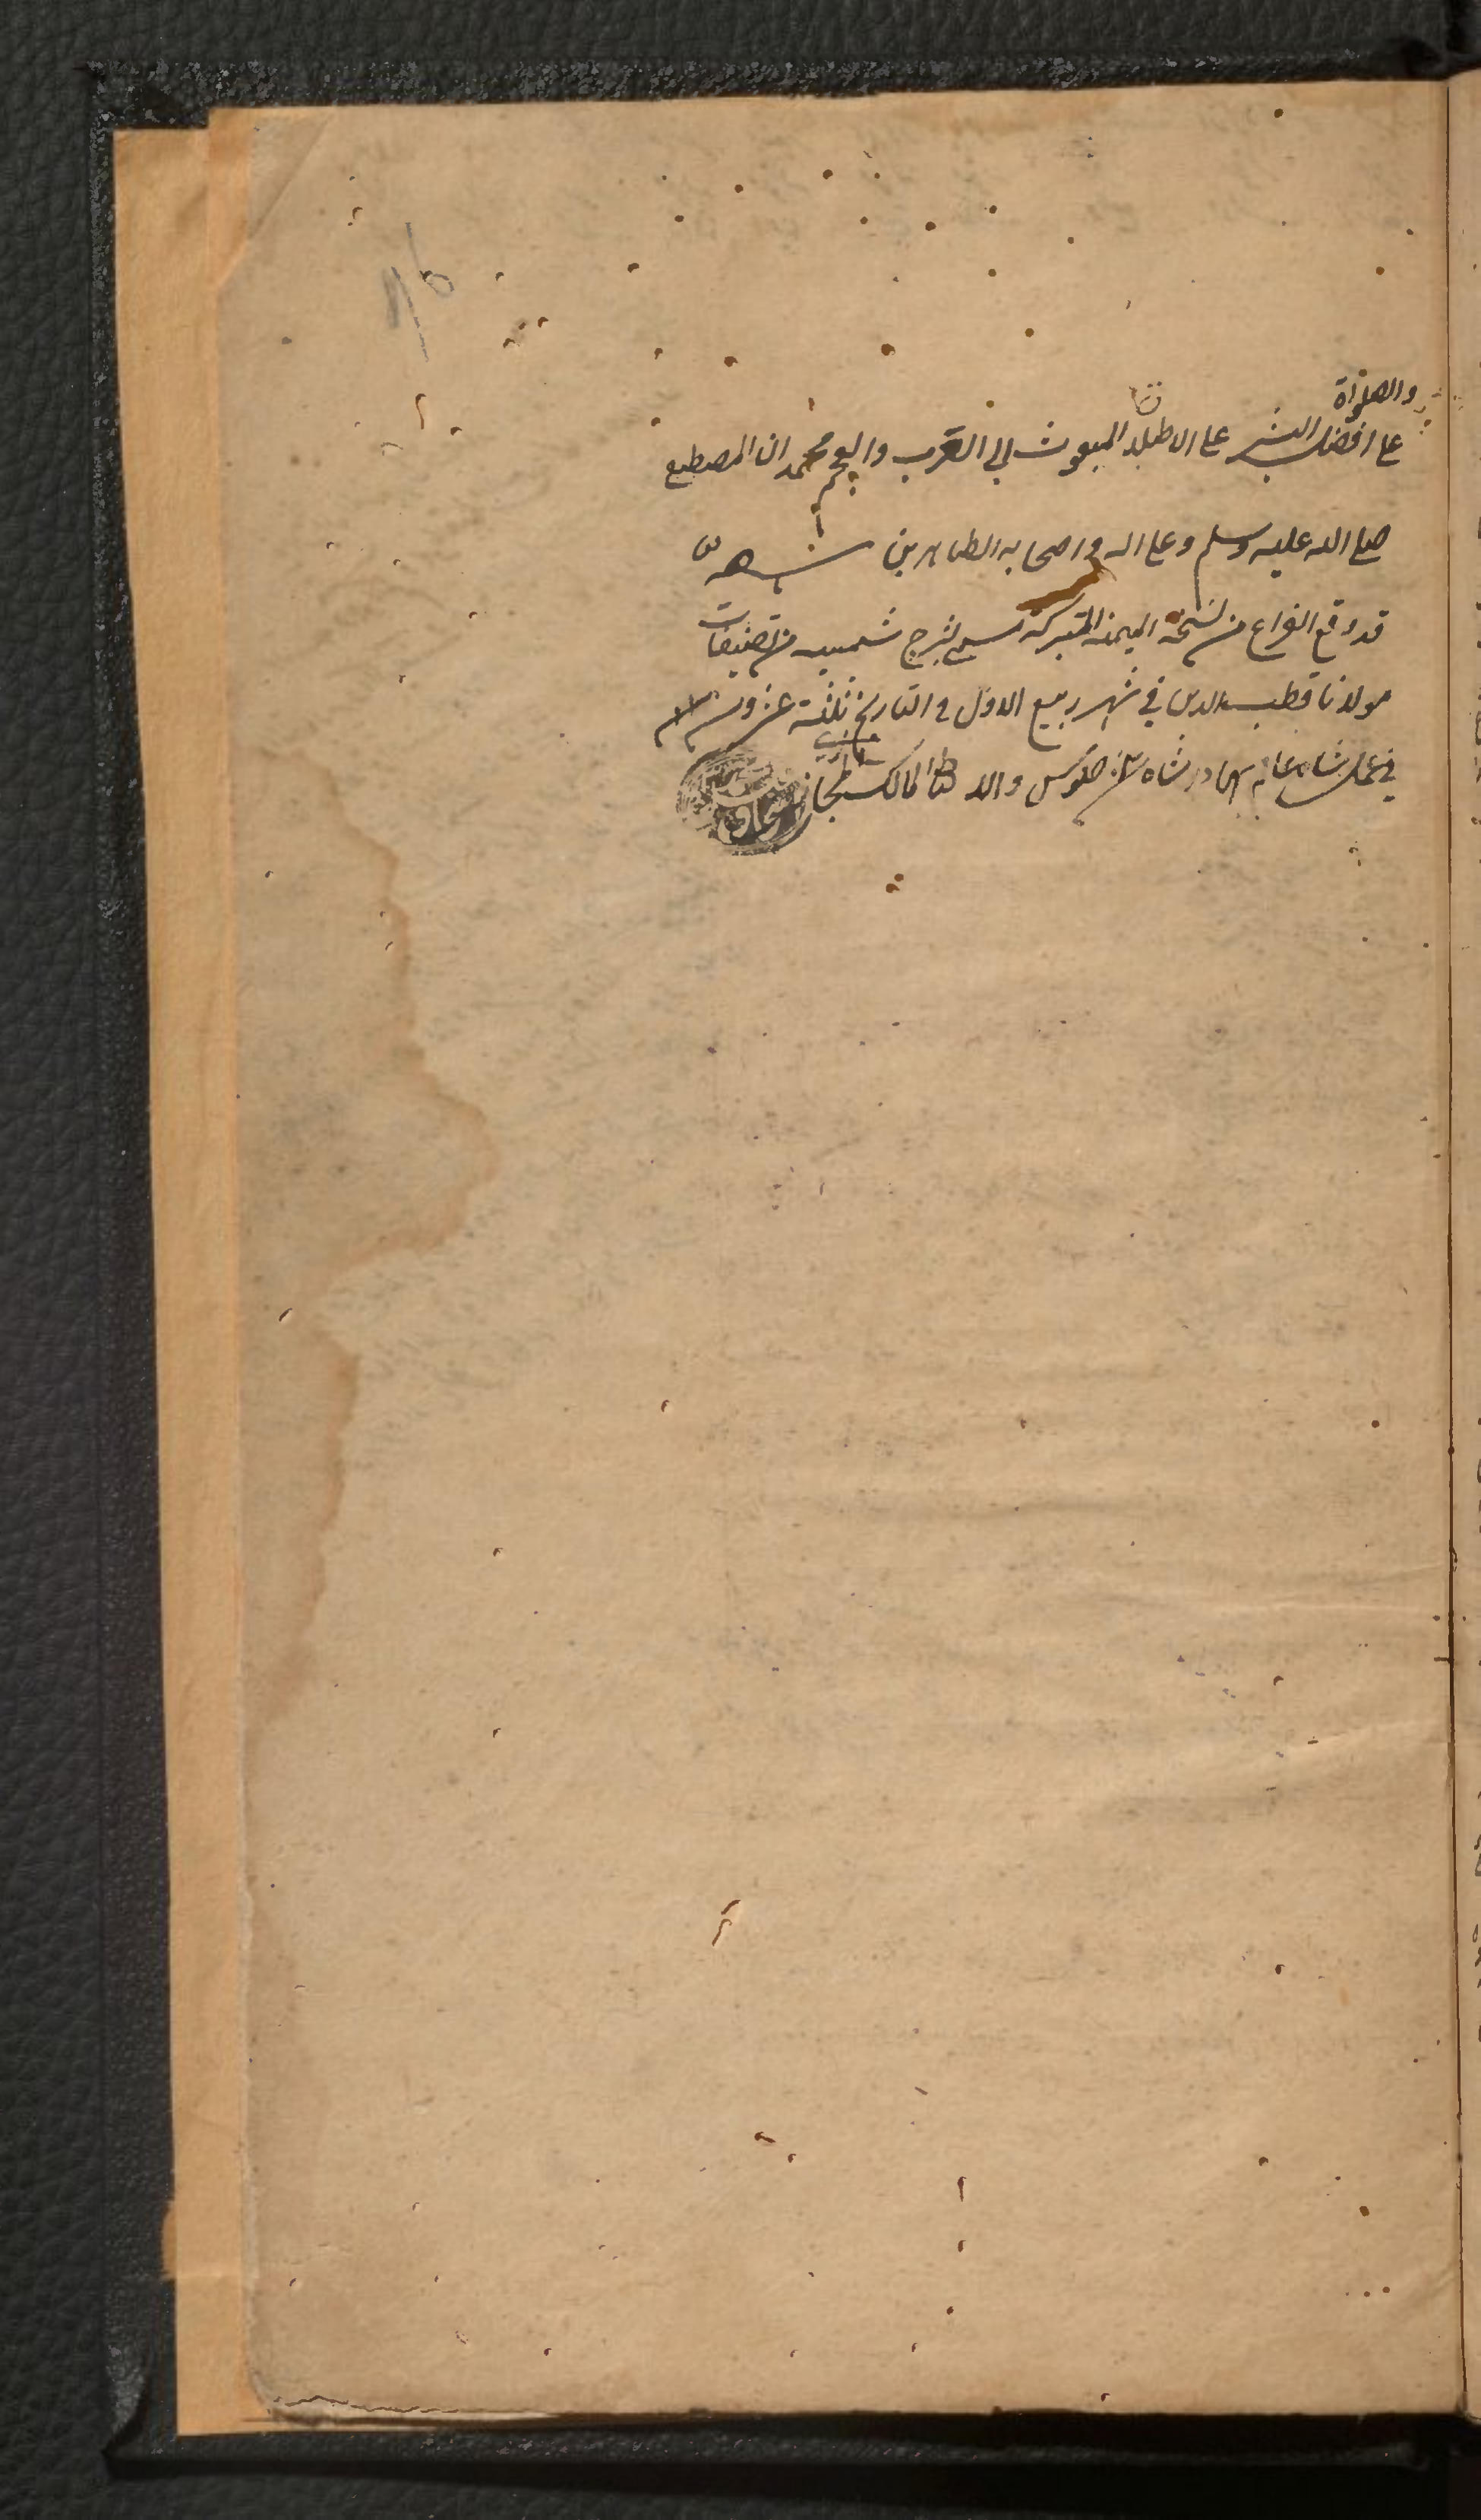 والصلواة
على افضل البشر على الاطلاق المبعوث الى العرب والعجم محمد ن المصطفى
صلى الله عليه وسلم وعلى اله واصحابه الطاهرين
قد وقع الفراغ من نسخة اليمنه المتبركة مسمى بشرح شمسيه من تصنيفات
مولانا قطب الدين في شهر ربيع الاول في التاريخ ثلثة عشرون ٢٣
في عمل شاه عالم بهادر شاه سنه جلوس والا